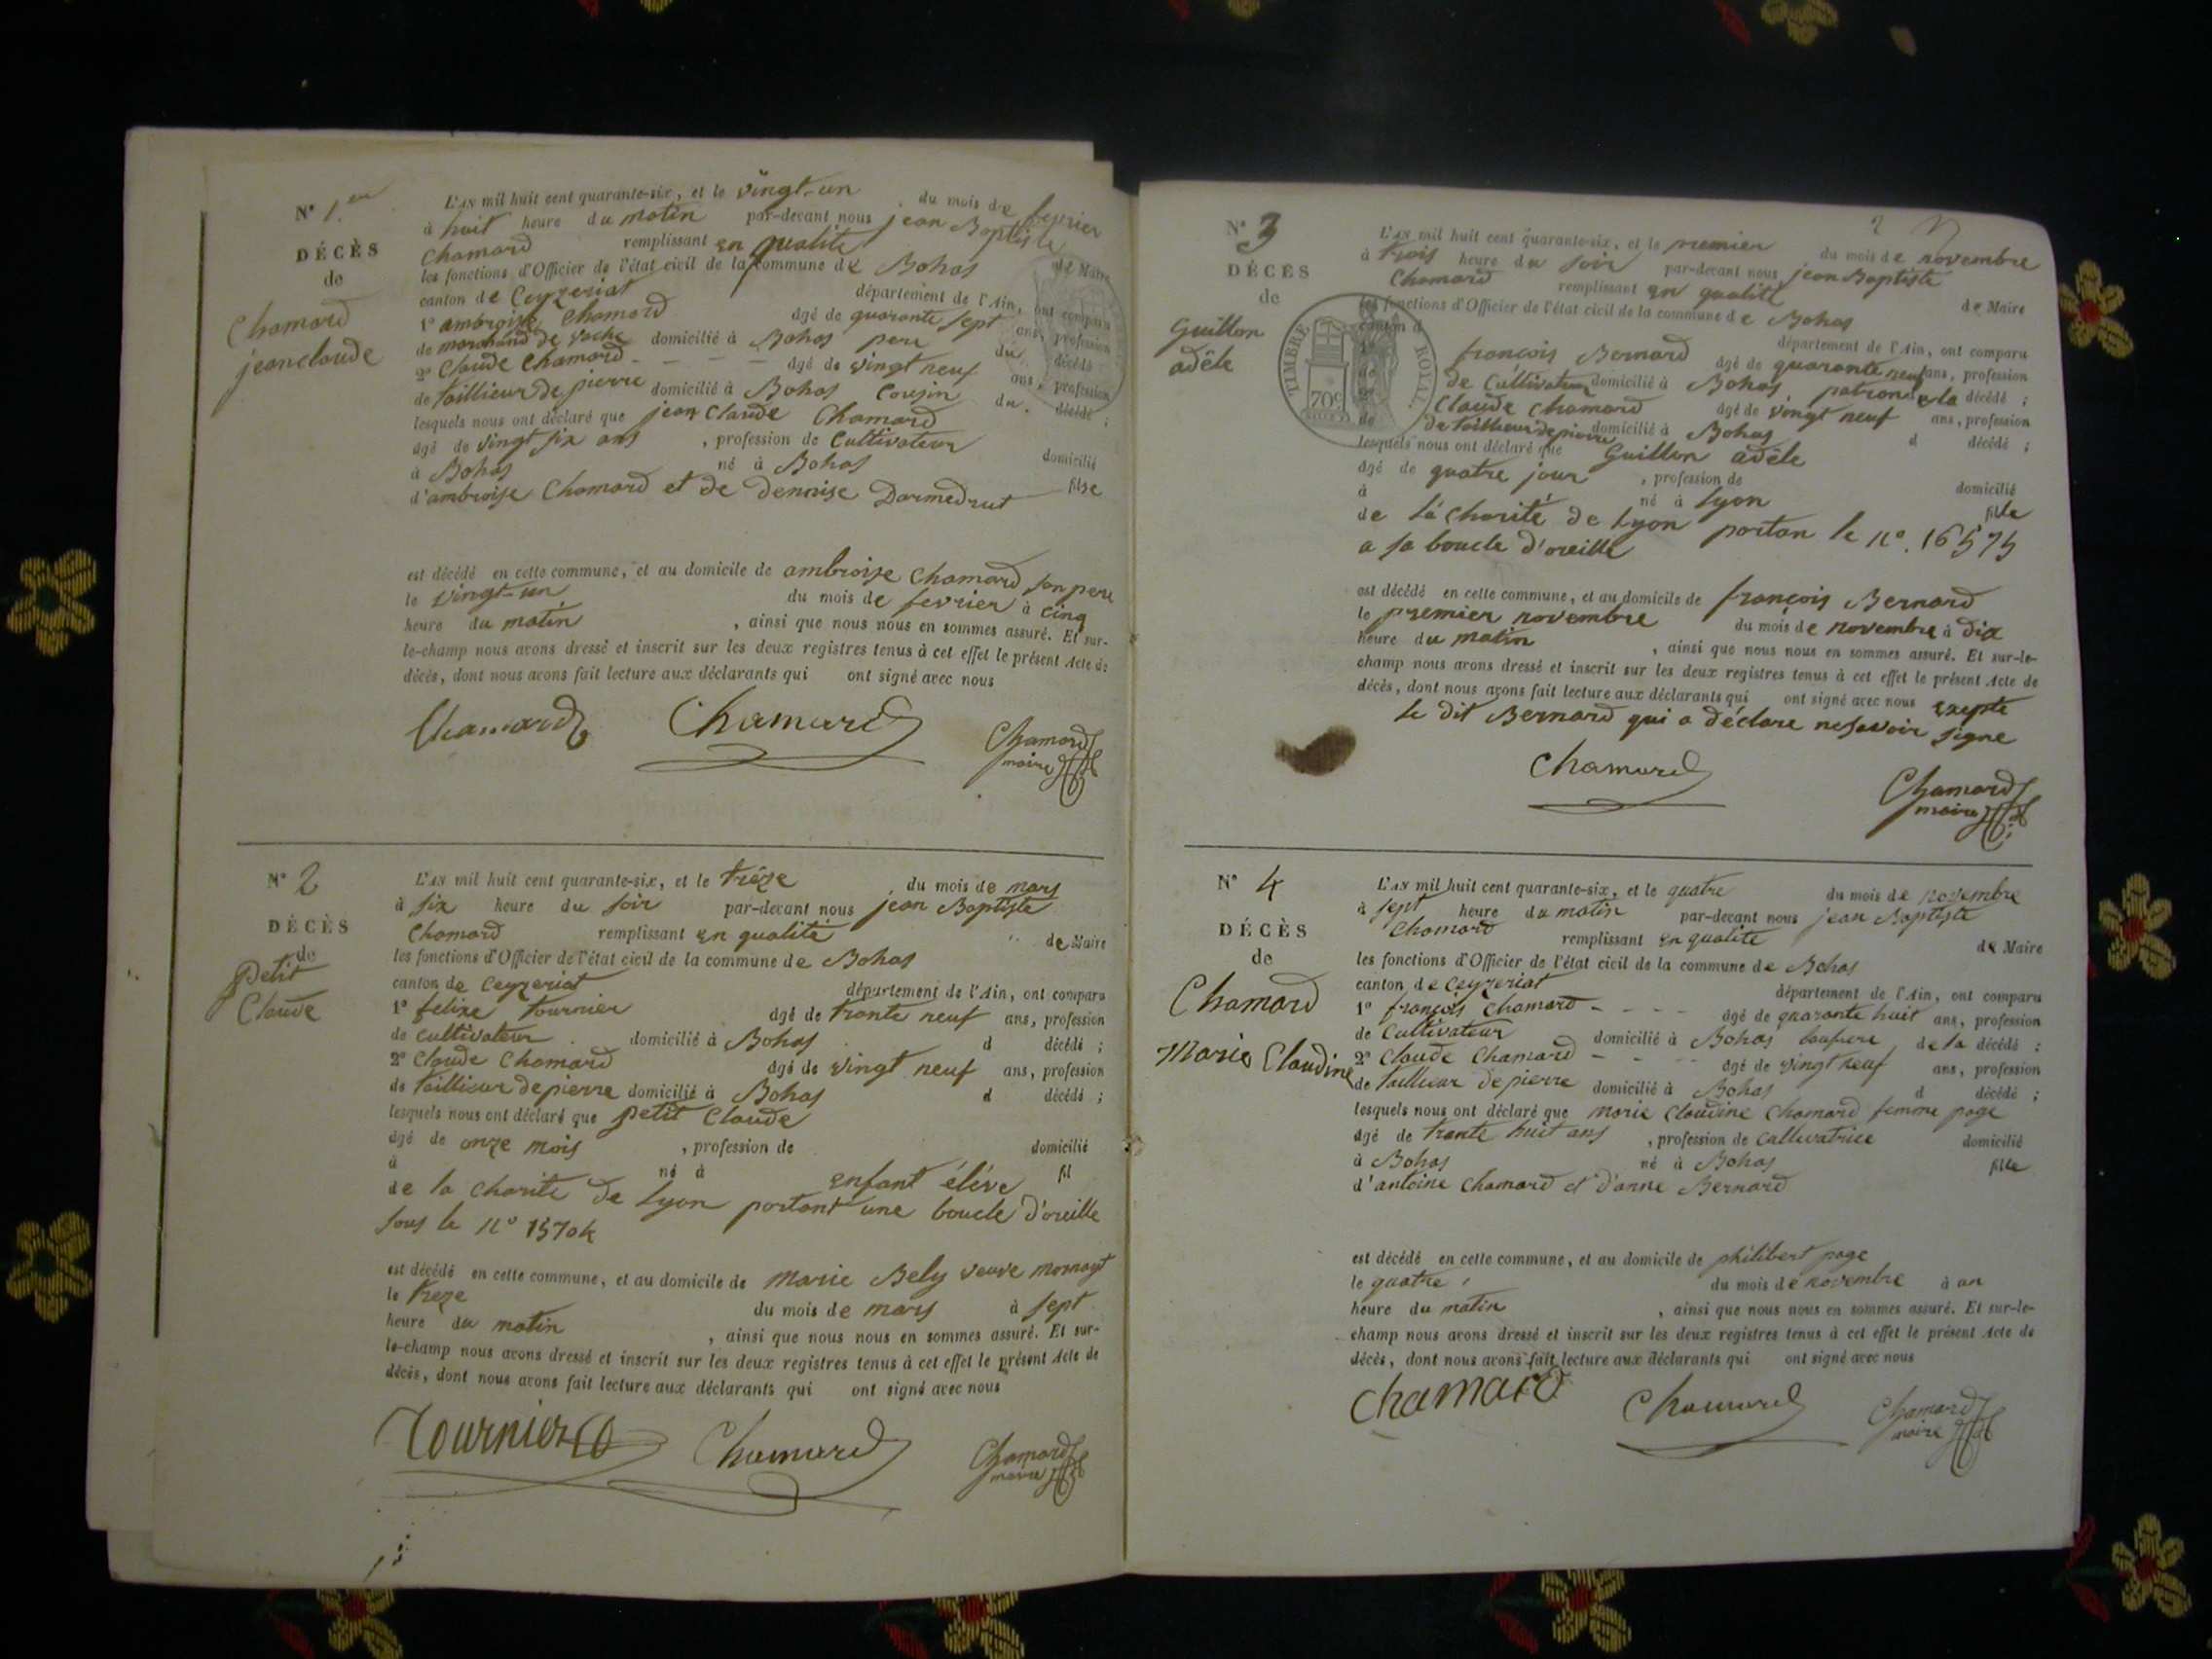 N° 1.er
DÉCÈS
de
Chamard
jean claude
L'AN mil huit cent quarante-six, et le vingt-un du mois de fevrier
à huit heure du matin par-devant nous jean Baptiste
Chamard remplissant en qualité de Maire
les fonctions d'Officier de l'état civil de la commune de Bohas
canton de Ceyzeriat département de l'Ain, ont comparu
1° ambroise Chamard âgé de quarante sept ans, profession
de marchand de vache domicilié à Bohas pere du décédé
2° Claude Chamard - - - âgé de vingt neuf ans, profession
de taillieur de pierre domicilié à Bohas Cousin du décédé ;
lesquels nous ont déclaré que jean Claude Chamard
âgé de vingt six ans , profession de Cultivateur domicilié
à Bohas né à Bohas fils
d'ambroise Chamard et de dennise Darmedrut
est décédé en cette commune, et au domicile de ambroise Chamard son pere
le vingt-un du mois de fevrier à cinq
heure du matin , ainsi que nous nous en sommes assuré. Et sur-
le-champ nous avons dressé et inscrit sur les deux registres tenus à cet effet le présent Acte de
décès, dont nous avons fait lecture aux déclarants qui ont signé avec nous
Chamard Chamard Chamard
maire
N° 2
DÉCÈS
de
Petit
Claude
L'AN mil huit cent quarante-six, et le trèze du mois de mars
à six heure du soir par-devant nous jean Baptiste
Chamard remplissant en qualité de Maire
les fonctions d'Officier de l'état civil de la commune de Bohas
canton de Ceyzeriat département de l'Ain, ont comparu
1° felixe tournier âgé de trante neuf ans, profession
de cultivateur domicilié à Bohas d décédé ;
2° Claude Chamard âgé de vingt neuf ans, profession
de taillieur de pierre domicilié à Bohas d décédé ;
lesquels nous ont déclaré que petit Claude
âgé de onze mois , profession de domicilié
à né à enfant éléve fil
de la charité de lyon portant une boucle d'oreille
sous le n° 15704
est décédé en cette commune, et au domicile de Marie Bely veuve mornay
le treze du mois de mars à sept
heure du matin , ainsi que nous nous en sommes assuré. Et sur-
le-champ nous avons dressé et inscrit sur les deux registres tenus à cet effet le présent Acte de
décès, dont nous avons fait lecture aux déclarants qui ont signé avec nous
Tournier Chamard Chamard
maire
2
N° 3
DÉCÈS
de
Guillon
adèle
L'AN mil huit cent quarante-six, et le premier du mois de novembre
à trois heure du soir par-devant nous jean Baptiste
Chamard remplissant en qualité de Maire
les fonctions d'Officier de l'état civil de la commune de Bohas
canton d département de l'Ain, ont comparu
françois Bernard âgé de quarante neuf ans, profession
de Cultivateur domicilié à Bohas patron de la décédé ;
Claude Chamard âgé de vingt neuf ans, profession
de de taillieur de pierre domicilié à Bohas d décédé ;
lesquels nous ont déclaré que Guillon adèle
âgé de quatre jour , profession de domicilié
à né à lyon fille
de la charité de lyon portan le n°. 16575
a sa boucle d'oreille
est décédé en cette commune, et au domicile de françois Bernard
le premier novembre du mois de novembre à dix
heure du matin , ainsi que nous nous en sommes assuré. Et sur-le-
champ nous avons dressé et inscrit sur les deux registres tenus à cet effet le présent Acte de
décès, dont nous avons fait lecture aux déclarants qui ont signé avec nous exepté
le dit Bernard qui a déclaré ne savoir signe
Chamard Chamard
maire
TIMBRE ROYAL
70c
N° 4
DÉCÈS
de
Chamard
Marie Claudine
L'AN mil huit cent quarante-six, et le quatre du mois de novembre
à sept heure du matin par-devant nous jean Baptiste
Chamard remplissant en qualité de Maire
les fonctions d'Officier de l'état civil de la commune de Bohas
canton de Ceyzeriat département de l'Ain, ont comparu
1° françois Chamard - - - - âgé de quarante huit ans, profession
de Cultivateur domicilié à Bohas baufrere de la décédé ;
2° Claude Chamard - - - âgé de vingt neuf ans, profession
de taillieur de pierre domicilié à Bohas d décédé ;
lesquels nous ont déclaré que marie claudine Chamard femme page
âgé de trante huit ans , profession de cultivatrice domicilié
à Bohas né à Bohas fille
d'antoine Chamard et d'anne Bernard
est décédé en cette commune, et au domicile de philibert page
le quatre du mois de novembre à un
heure du matin , ainsi que nous nous en sommes assuré. Et sur-le-
champ nous avons dressé et inscrit sur les deux registres tenus à cet effet le présent Acte de
décès, dont nous avons fait lecture aux déclarants qui ont signé avec nous
Chamard Chamard Chamard
maire